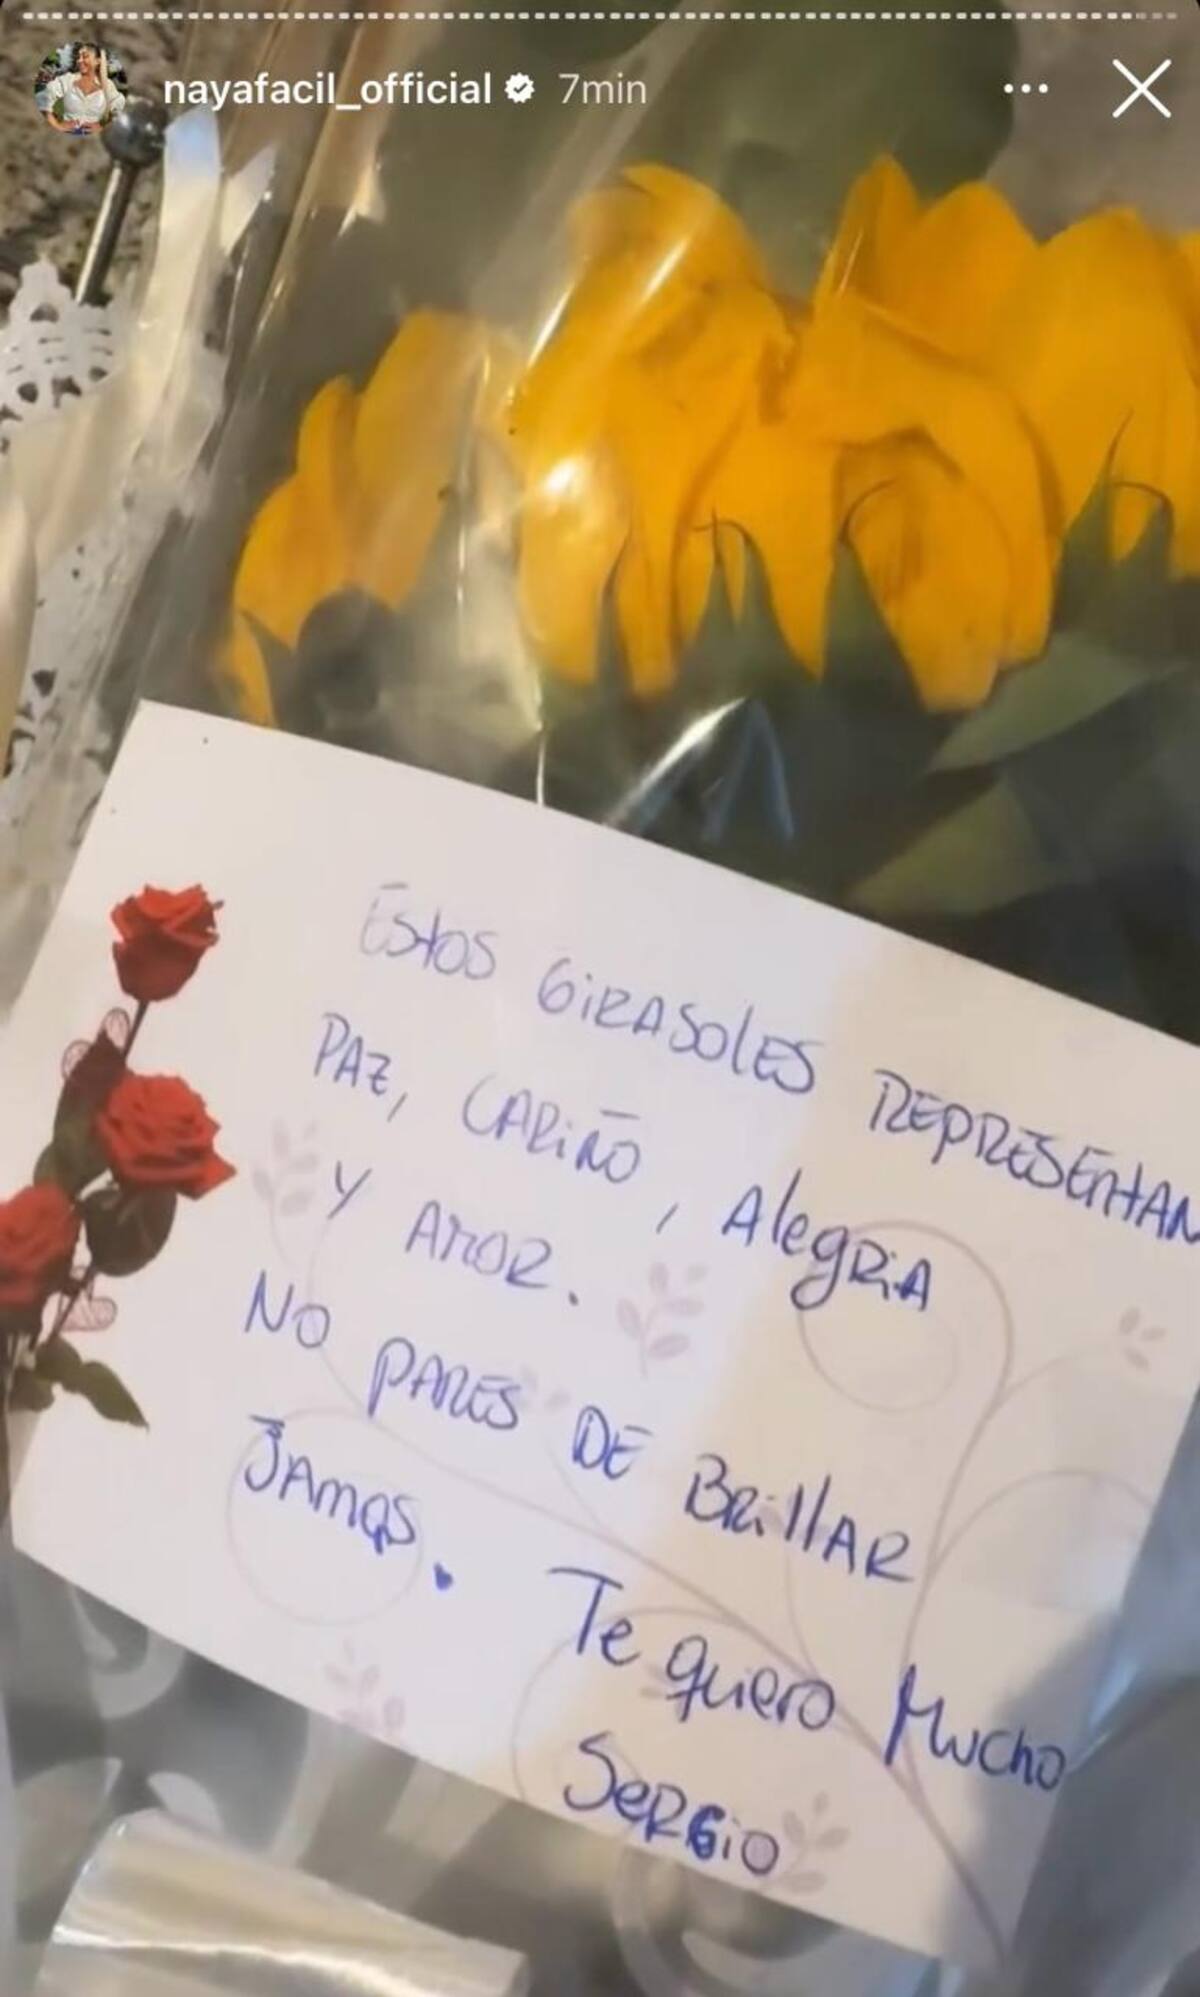 nayafacil_official 7min
Estos GiRASolES REPRESENtAN
PAZ, CARiÑO, AlegRiA
Y AMOR.
NO PARES DE BRillAR
JAmas. Te quiero Mucho
SeRGiO